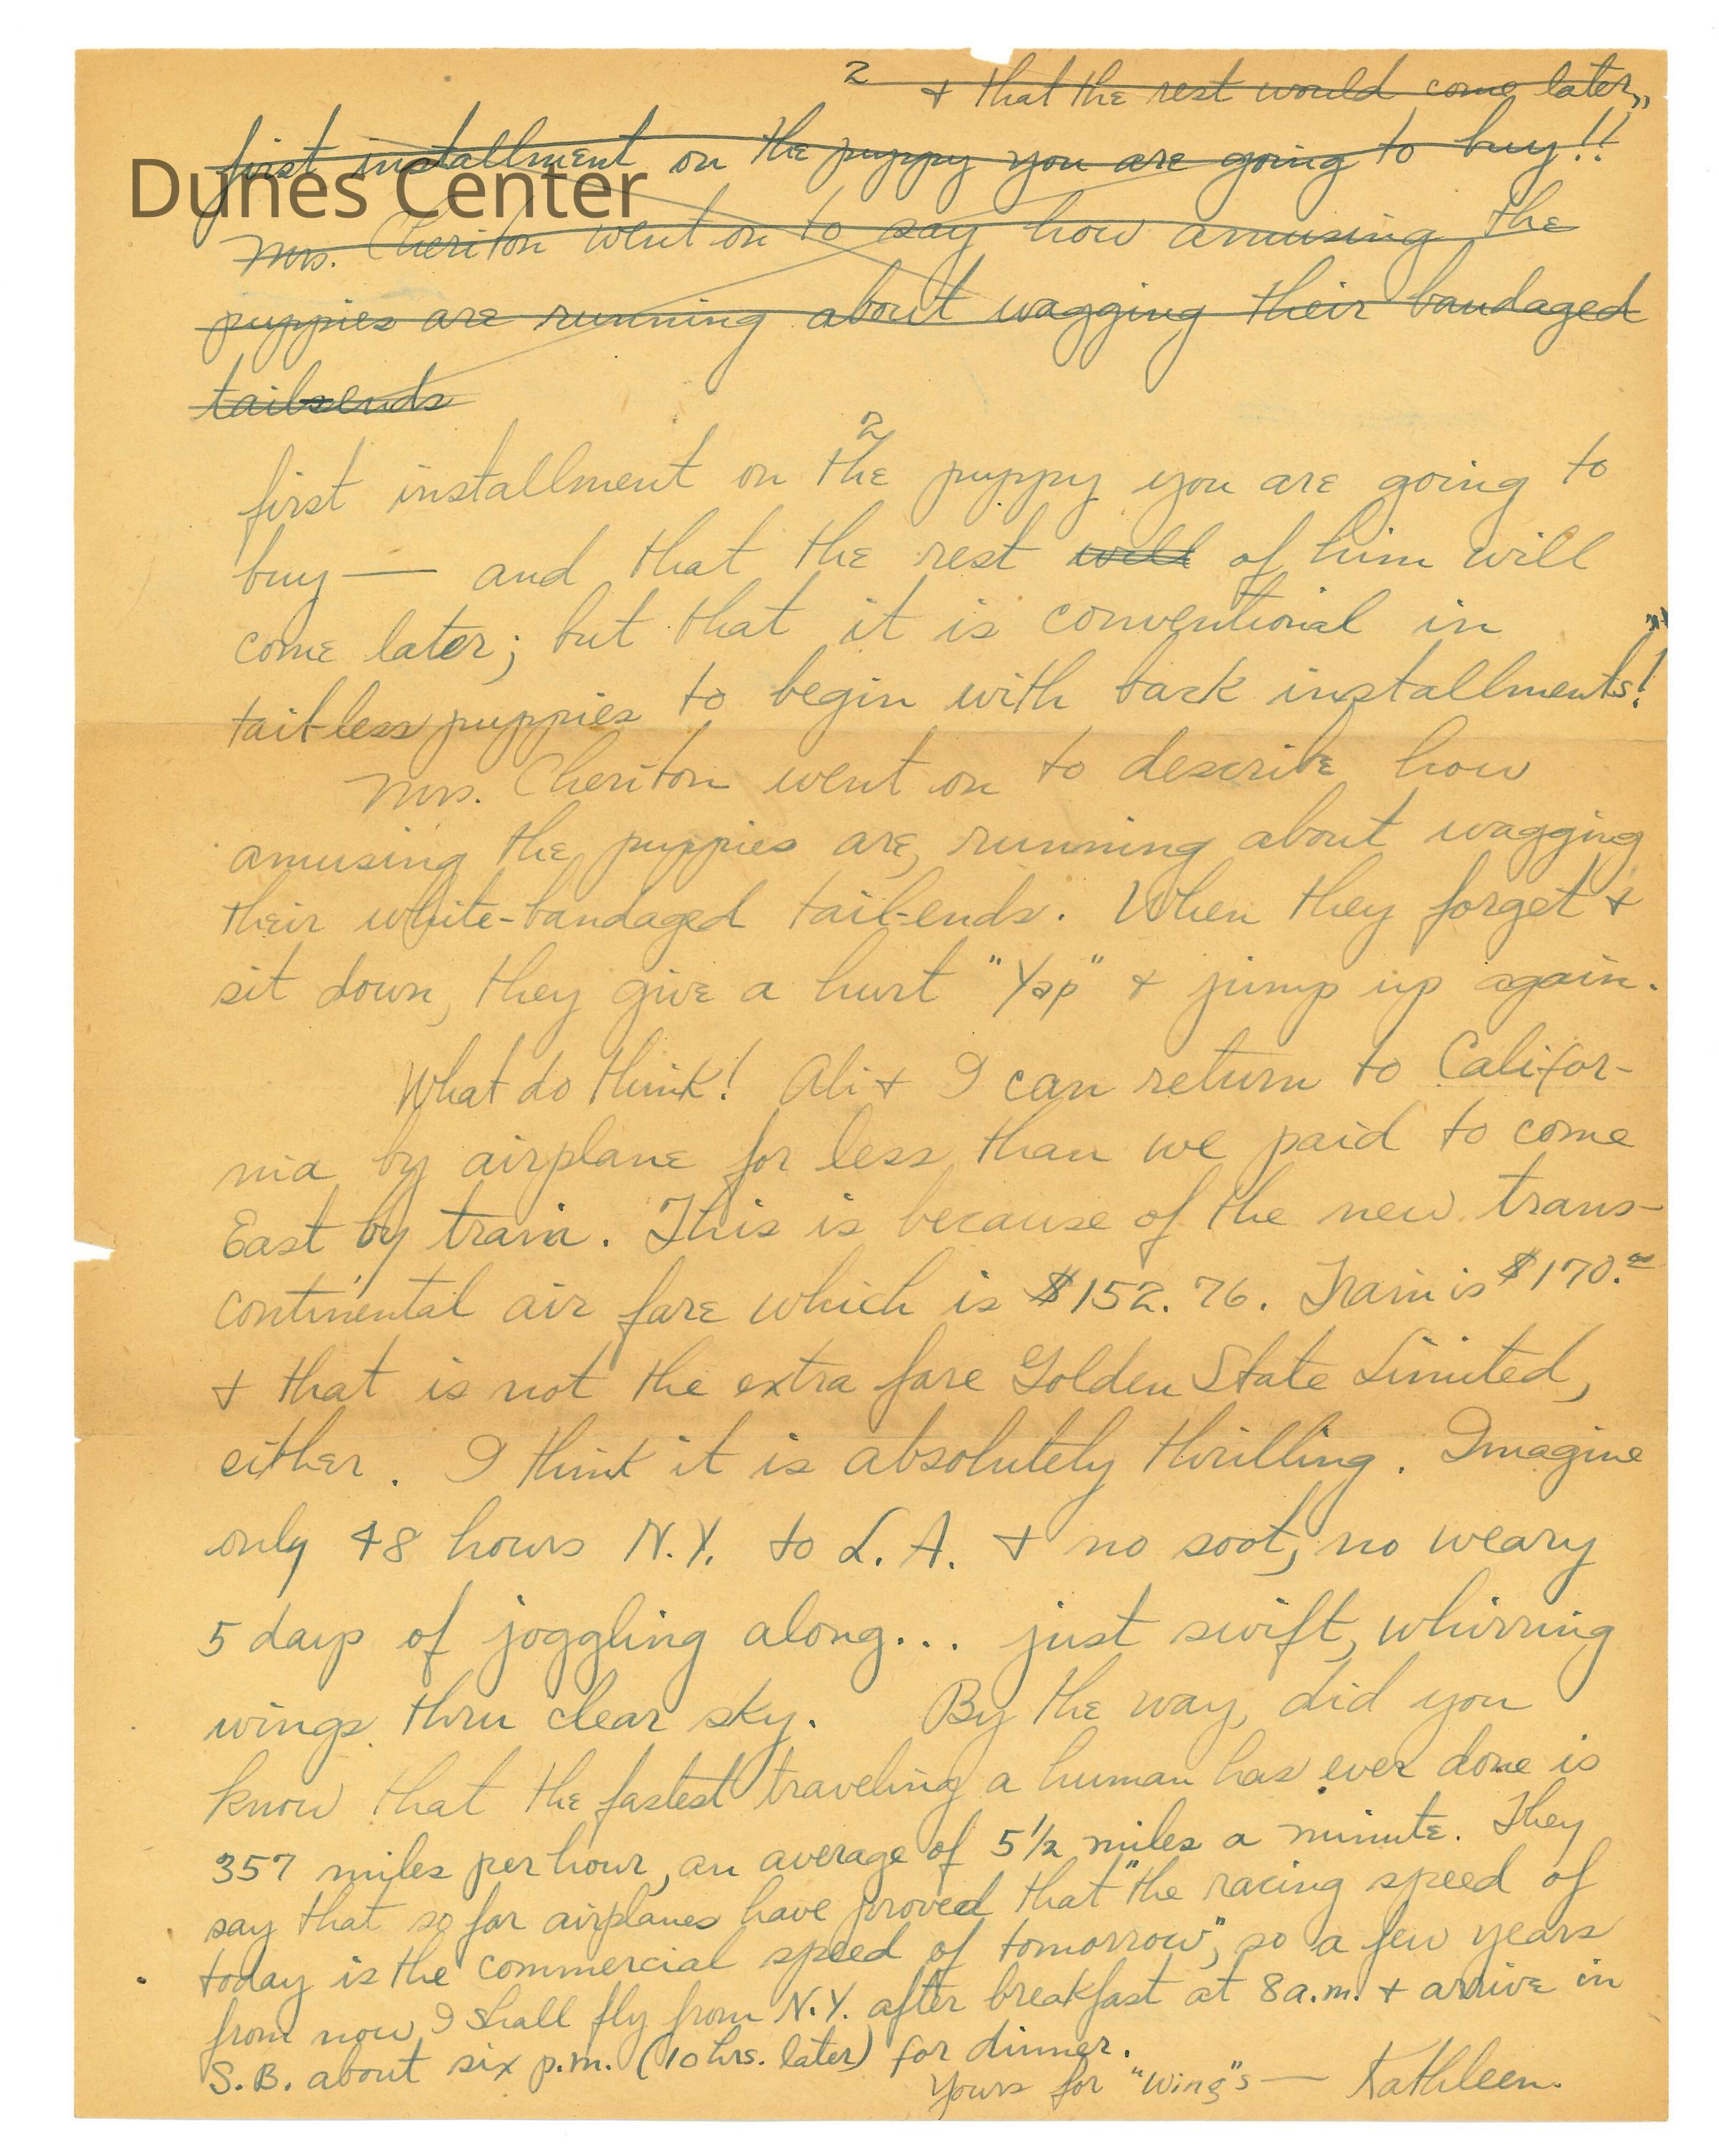 2 + that the rest would come later,"
first installment on the puppy you are going to buy!!
Dunes Center
Mrs. Cheriton went on to say how amusing the
puppies are running about wagging their bandaged
tailsends
2
first installment on the puppy you are going to
buy — and that the rest will of him will
come later; but that it is conventional in
tailless puppies to begin with back installments!"
Mrs. Cheriton went on to describe how
amusing the puppies are, running about wagging
their white-bandaged tail-ends. When they forget +
sit down, they give a hurt "Yap" + jump up again.
What do think! Ali + I can return to Califor-
nia by airplane for less than we paid to come
East by train. This is because of the new trans-
continental air fare which is $152.76. Train is $170.00
+ that is not the extra fare Golden State Limited,
either. I think it is absolutely thrilling. Imagine
only 48 hours N.Y. to L.A. + no soot, no weary
5 days of joggling along... just swift, whirring
wings thru clear sky. By the way, did you
know that the fastest traveling a human has ever done is
357 miles per hour, an average of 5 1/2 miles a minute. They
say that so far airplanes have proved that "the racing speed of
today is the commercial speed of tomorrow", so a few years
from now I shall fly from N.Y. after breakfast at 8 a.m. + arrive in
S.B. about six p.m. (10 hrs. later) for dinner.
Yours for "wing"s — Kathleen.